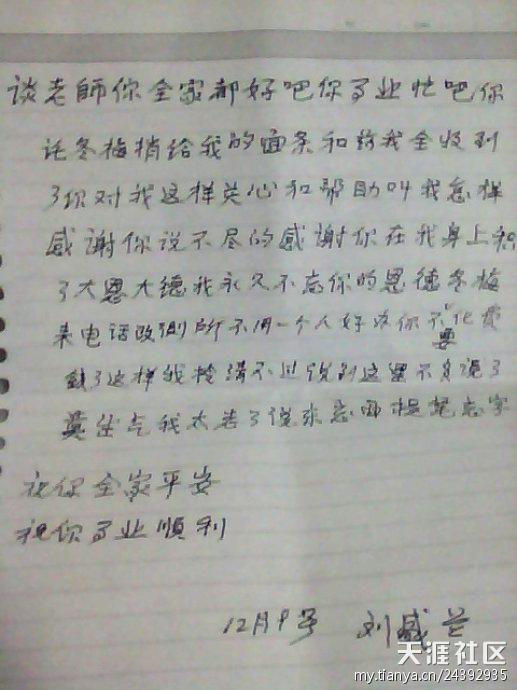 谈老師你全家都好吧你了业忙吧你
托冬梅捎给我的面条和药我全收到
了你对我这样关心和帮助叫我怎样
感谢你说不尽的感谢你在我身上积
了大恩大德我永久不忘你的恩德冬梅
来电话改厠所不用一个人好办你不要化费
钱了这样我 不过 到这里不多说了
我太老了 忘 提笔忘字
祝你全家平安
祝你了业順利
12月9号 刘盛兰
天涯社区
my.tianya.cn/24392935